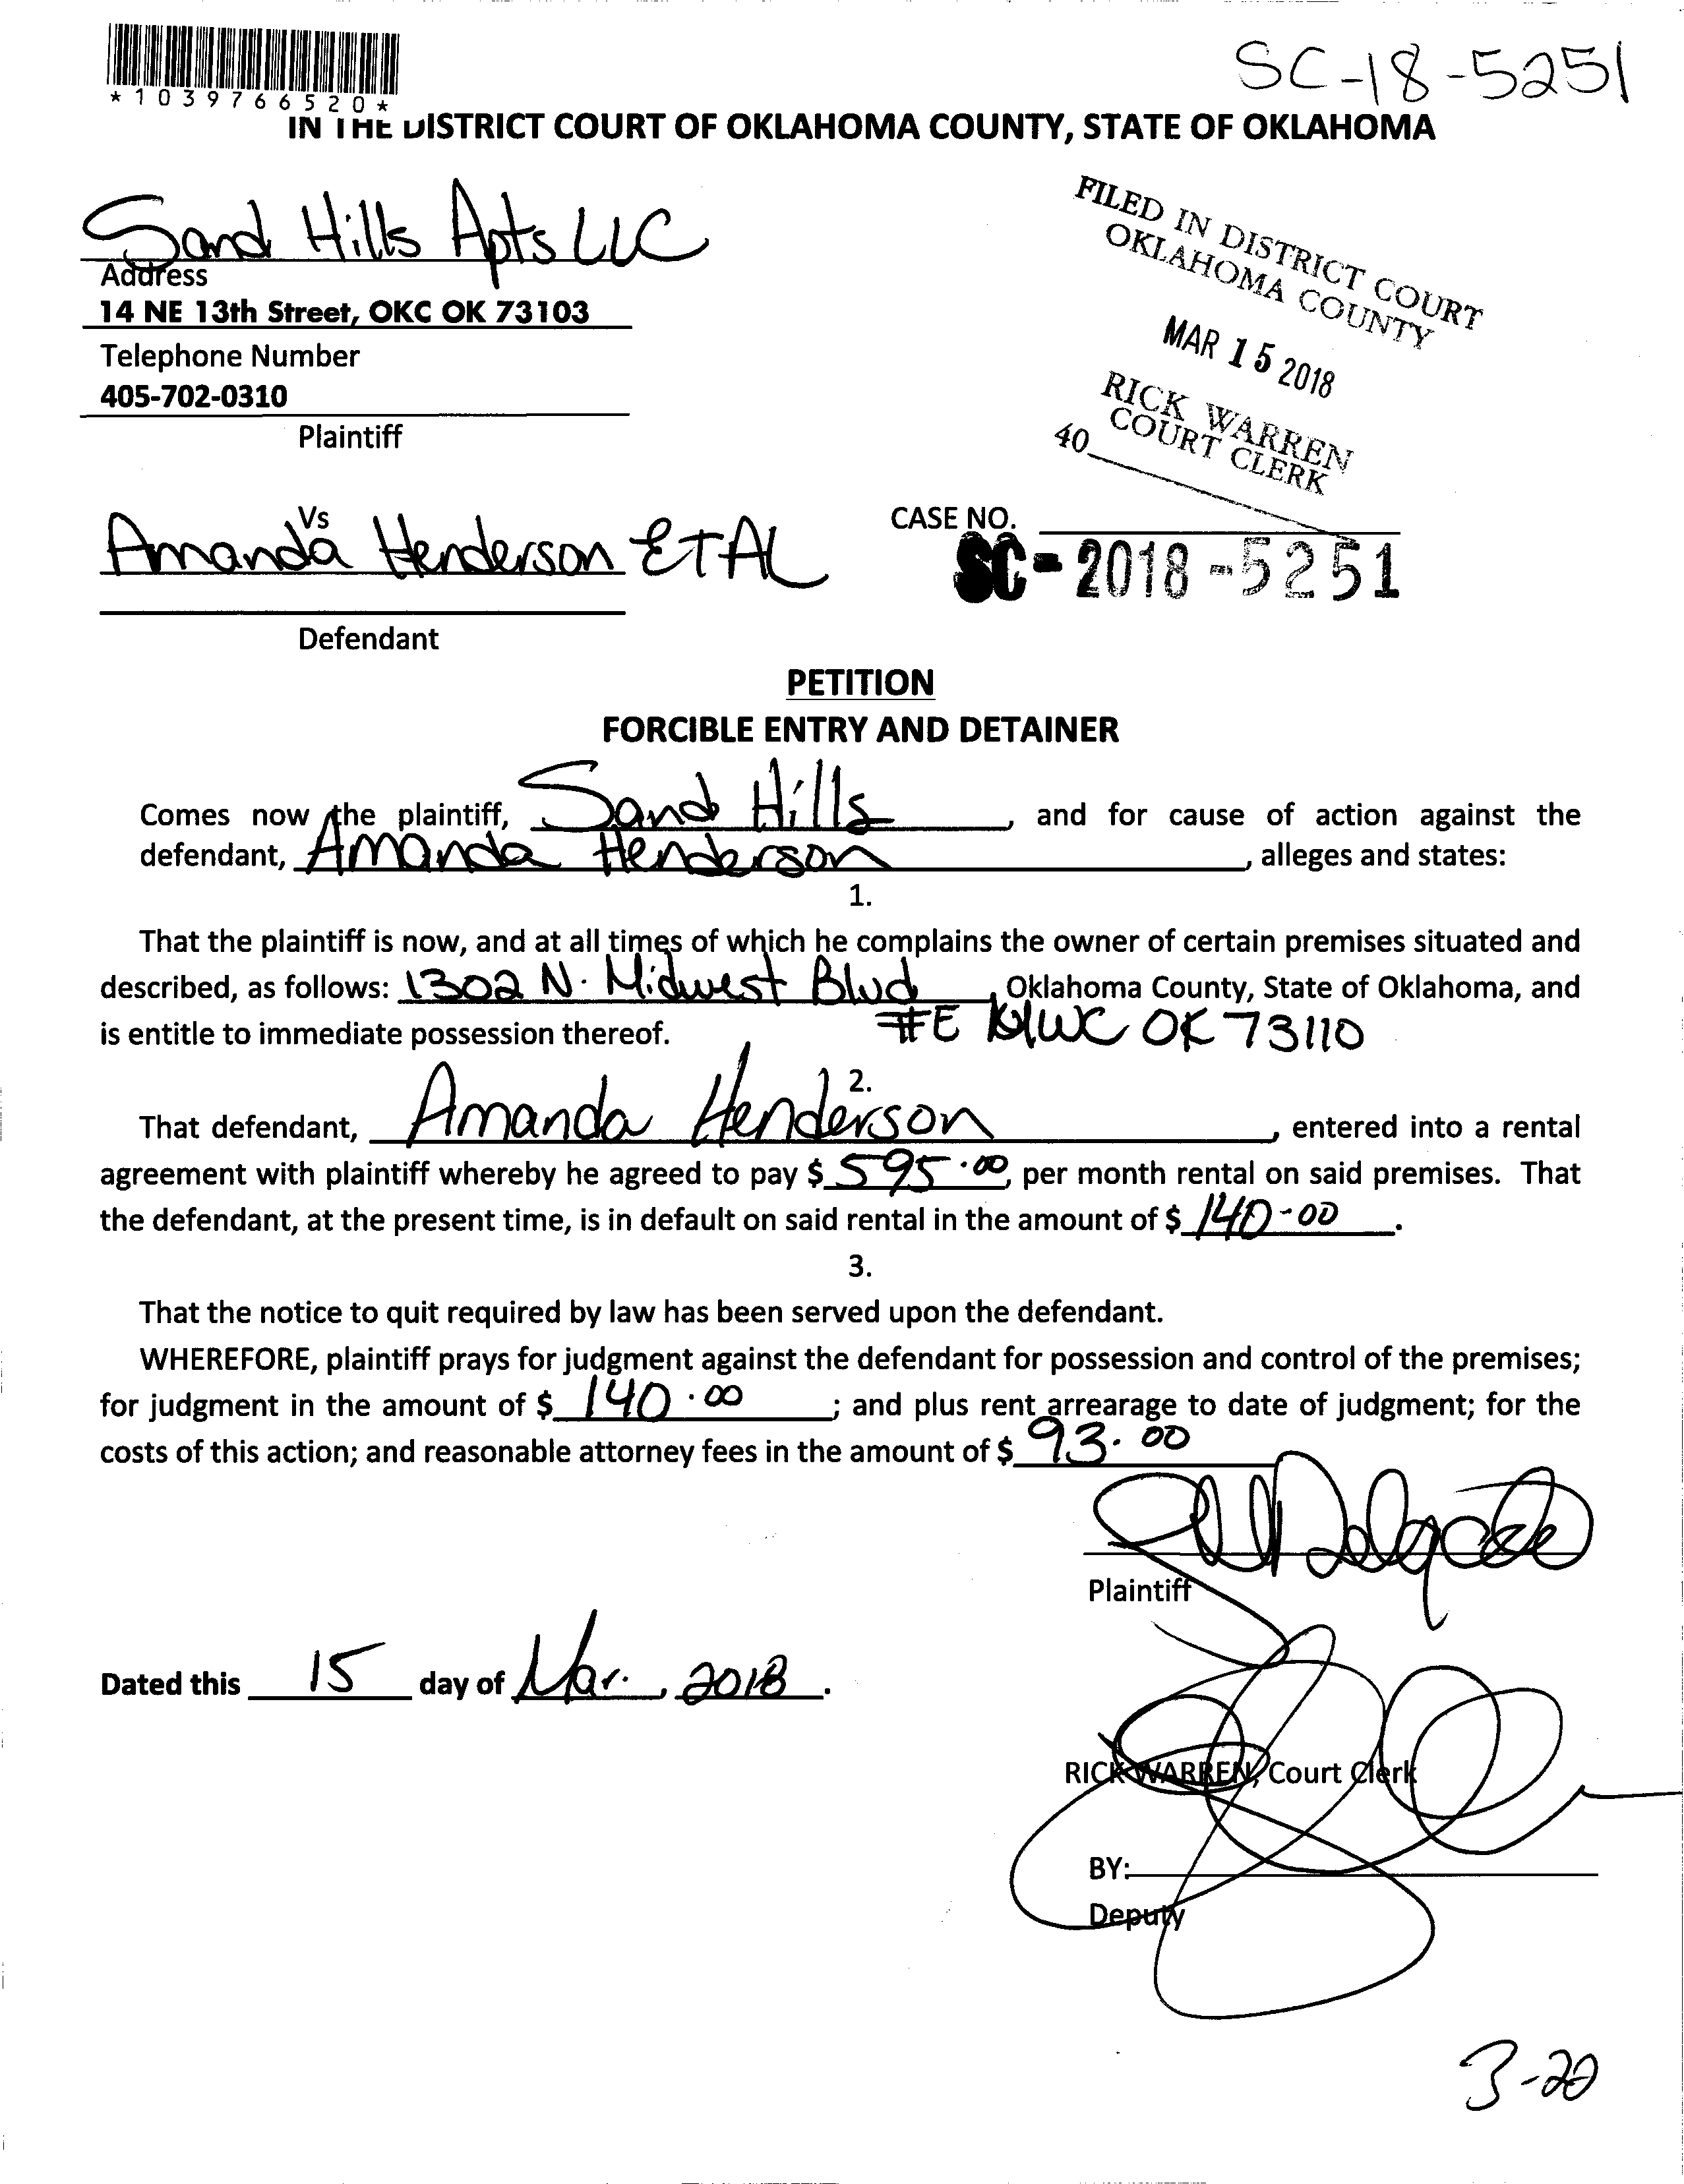 SC-18-5251
*1039766520*
IN THE DISTRICT COURT OF OKLAHOMA COUNTY, STATE OF OKLAHOMA
Sand Hills Apts LLC
Address
14 NE 13th Street, OKC OK 73103
Telephone Number
405-702-0310
Plaintiff
FILED IN DISTRICT COURT
OKLAHOMA COUNTY
MAR 15 2018
RICK WARREN
COURT CLERK
40
Vs
Amanda Henderson ET AL
Defendant
CASE NO.
SC-2018-5251
PETITION
FORCIBLE ENTRY AND DETAINER
Comes now the plaintiff, Sand Hills, and for cause of action against the
defendant, Amanda Henderson, alleges and states:
1.
That the plaintiff is now, and at all times of which he complains the owner of certain premises situated and
described, as follows: 1302 N. Midwest Blvd, Oklahoma County, State of Oklahoma, and
is entitle to immediate possession thereof. #E MWC OK 73110
2.
That defendant, Amanda Henderson, entered into a rental
agreement with plaintiff whereby he agreed to pay $ 595.00, per month rental on said premises. That
the defendant, at the present time, is in default on said rental in the amount of $ 140-00.
3.
That the notice to quit required by law has been served upon the defendant.
WHEREFORE, plaintiff prays for judgment against the defendant for possession and control of the premises;
for judgment in the amount of $ 140.00; and plus rent arrearage to date of judgment; for the
costs of this action; and reasonable attorney fees in the amount of $ 93.00
Plaintiff
Dated this 15 day of Mar., 2018.
RICK WARREN, Court Clerk
BY:
Deputy
3-20